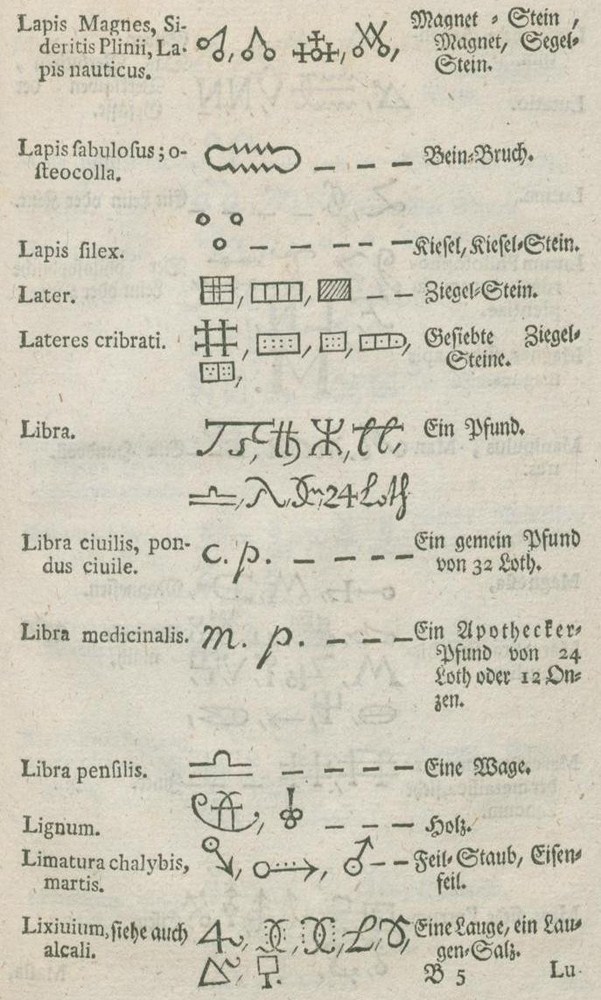 Lapis Magnes, Si- Magnet-Stein,
deritis Plinii, La- Magnet, Segel-
pis nauticus. Stein.
Lapis ſabuloſus; o- — — — Bein-Bruch.
ſteocolla.
Lapis ſilex. — — — — Kieſel, Kieſel-Stein.
Later. — — Ziegel-Stein.
Lateres cribrati. Geſiebte Ziegel-
Steine.
Libra. Ein Pfund.
24 Loth
Libra ciuilis, pon- c. p. — — — — Ein gemein Pfund
dus ciuile. von 32 Loth.
Libra medicinalis. m. p. — — — Ein Apothecker-
Pfund von 24
Loth oder 12 On-
zen.
Libra penſilis. — — — — Eine Wage.
Lignum. — — — Holz.
Limatura chalybis, — — Feil-Staub, Eiſen-
martis. feil.
Lixiuium, ſiehe auch Eine Lauge, ein Lau-
alcali. gen-Salz.
B 5 Lu-